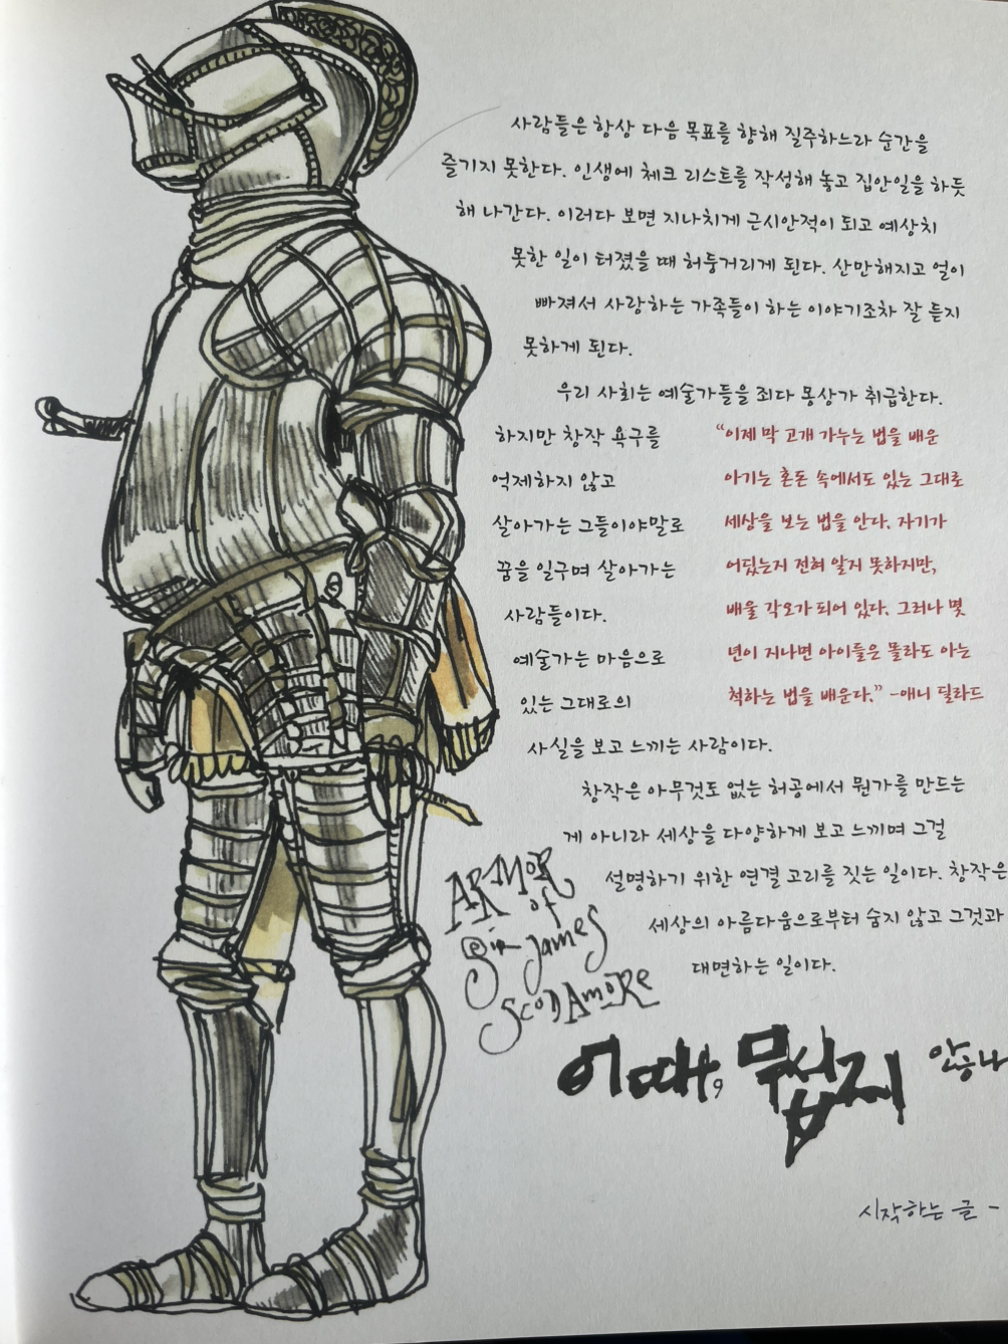 사람들은 항상 다음 목표를 향해 질주하느라 순간을
즐기지 못한다. 인생에 체크 리스트를 작성해 놓고 집안일을 하듯
해 나간다. 이러다 보면 지나치게 근시안적이 되고 예상치
못한 일이 터졌을 때 허둥거리게 된다. 산만해지고 얼이
빠져서 사랑하는 가족들이 하는 이야기조차 잘 듣지
못하게 된다.
우리 사회는 예술가들을 죄다 몽상가 취급한다.
하지만 창작 욕구를
억제하지 않고
살아가는 그들이야말로
꿈을 일구며 살아가는
사람들이다.
예술가는 마음으로
있는 그대로의
사실을 보고 느끼는 사람이다.
“이제 막 고개 가누는 법을 배운
아기는 혼돈 속에서도 있는 그대로
세상을 보는 법을 안다. 자기가
어딨는지 전혀 알지 못하지만,
배울 각오가 되어 있다. 그러나 몇
년이 지나면 아이들은 몰라도 아는
척하는 법을 배운다.” -애니 딜라드
창작은 아무것도 없는 허공에서 뭔가를 만드는
게 아니라 세상을 다양하게 보고 느끼며 그걸
설명하기 위한 연결 고리를 짓는 일이다. 창작은
세상의 아름다움으로부터 숨지 않고 그것과
대면하는 일이다.
ARMOR
of
Sir James
SCODAMORE
어때, 무섭지
시작하는 글 -